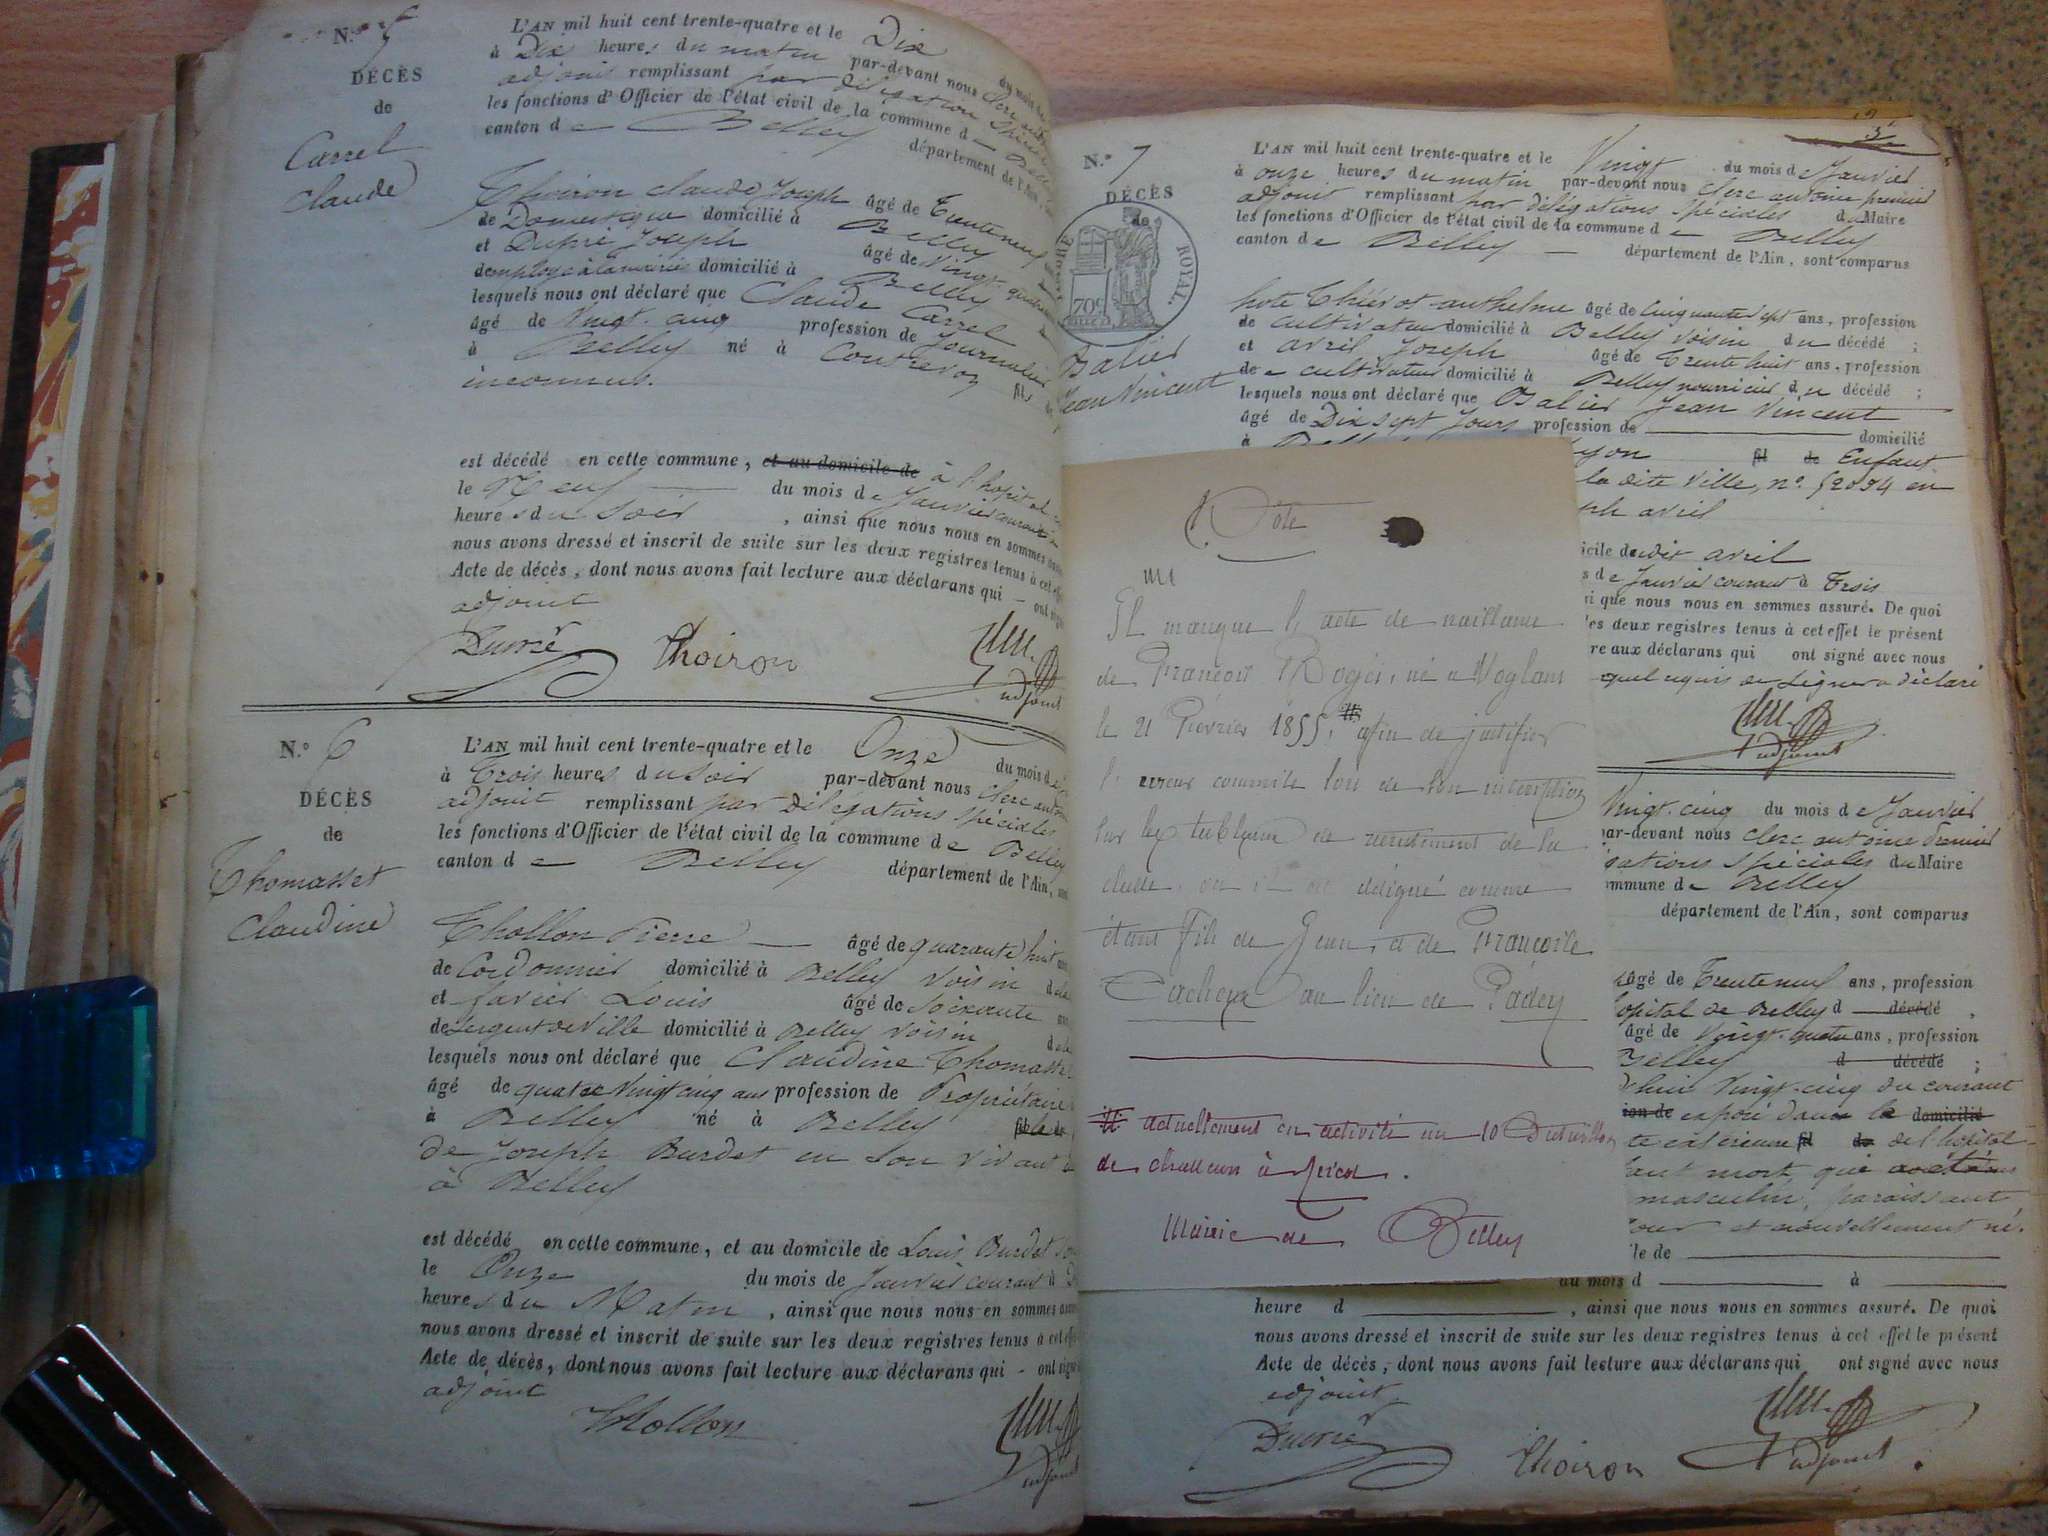 N.° 5
DÉCÈS
de
Carrel
Claude
L'AN mil huit cent trente-quatre et le Dix du mois de
à Dix heures du matin par-devant nous Clerc
adjoint remplissant par délégation
les fonctions d'Officier de l'état civil de la commune de
canton de Belley département de l'Ain,
Thoiron Claude Joseph âgé de Trenteneuf
de Domestique domicilié à Belley
et Dupré Joseph âgé de Vingt-quatre
d'employé à la mairie domicilié à Belley
lesquels nous ont déclaré que Claude Carrel
âgé de Vingt-cinq profession de Journalier
à Belley né à Contrevoz fils de
inconnus.
est décédé en cette commune, et au domicile de à l'hopital
le Neuf du mois de Janvier courant
heures du Soir, ainsi que nous nous en sommes
nous avons dressé et inscrit de suite sur les deux registres tenus à cet effet
Acte de décès, dont nous avons fait lecture aux déclarans qui — ont signé
adjoint
Thoiron
adjoint
N.° 6
DÉCÈS
de
Thomasset
Claudine
L'AN mil huit cent trente-quatre et le Onze du mois de
à Trois heures du Soir par-devant nous Clerc
adjoint remplissant par délégations spéciales
les fonctions d'Officier de l'état civil de la commune de Belley
canton de Belley département de l'Ain,
Thollon Pierre — âgé de quarante huit ans
de Cordonnier domicilié à Belley voisin de la
et favier Louis âgé de soixante
de Sergent de Ville domicilié à Belley voisin de la
lesquels nous ont déclaré que Claudine Thomasset
âgé de quatre Vingt cinq ans profession de Propriétaire
à Belley né à Belley fil de
de Joseph Burdet en son vivant
à Belley
est décédé en cette commune, et au domicile de Louis Burdet
le Onze du mois de Janvier courant à
heures du Matin, ainsi que nous nous en sommes
nous avons dressé et inscrit de suite sur les deux registres tenus à cet effet
Acte de décès, dont nous avons fait lecture aux déclarans qui - ont signé
adjoint
Thollon
adjoint
N.° 7
DÉCÈS
de
TIMBRE ROYAL.
70c
Balier
Jean Vincent
L'AN mil huit cent trente-quatre et le Vingt du mois de Janvier
à onze heures du matin par-devant nous Clerc antoine premier
adjoint remplissant par délégations spéciales du Maire
les fonctions d'Officier de l'état civil de la commune de Belley
canton de Belley — département de l'Ain, sont comparus
anthelme âgé de Cinquante sept ans, profession
de cultivateur domicilié à Belley voisin du décédé ;
et avril Joseph âgé de Trente huit ans, profession
de cultivateur domicilié à Belley nourricier du décédé ;
lesquels nous ont déclaré que Balier Jean Vincent
âgé de Dix sept Jours profession de domicilié
à fil de Enfant
la dite Ville, n.° 52034 en
avril
icile dudit avril
s de Janvier courant à Trois
si que nous nous en sommes assuré. De quoi
les deux registres tenus à cet effet le présent
re aux déclarans qui ont signé avec nous
quel requis de signer a déclaré
adjoint
Note
Il manque l'acte de naissance
de François Roger, né à Voglans
le 21 Février 1855, # afin de justifier
l'erreur commise lors de son inscription
sur les tableaux de recensement de la
classe, où il est désigné comme
étant fils de Jean, et de Françoise
Cacheux au lieu de Padey
# actuellement en activité au 10 Bataillon
de chasseurs à
Mairie de Belley
Vingt-cinq du mois de Janvier
par-devant nous Clerc antoine Premier
gations spéciales du Maire
ommune de Belley
département de l'Ain, sont comparus
âgé de Trenteneuf ans, profession
opital de Belley d décédé
âgé de Vingt-quatre ans, profession
Belley d décédé ;
Vingt-cinq du courant
ion de exposé dans le domicilié
te extérieure fil de de l'hôpital
fant mort, qui
masculin, paraissant
jour et nouvellement né.
le de
au mois d à
heure d , ainsi que nous nous en sommes assuré. De quoi
nous avons dressé et inscrit de suite sur les deux registres tenus à cet effet le présent
Acte de décès, dont nous avons fait lecture aux déclarans qui ont signé avec nous
adjoint
Thoiron
adjoint